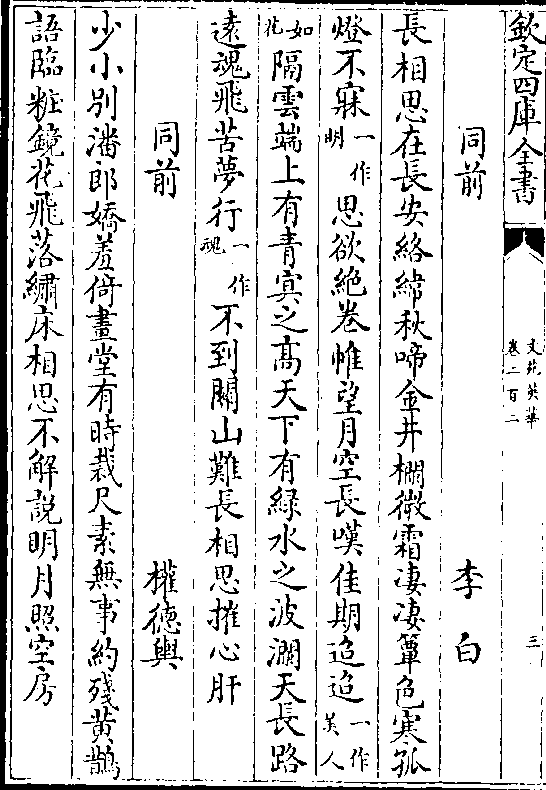 欽定四庫全書
文苑英華
卷二百二
三
同前 李白
長相思在長安絡緯秋啼金井欄微霜凄凄簟色寒孤
燈不寐一作明思欲絶卷帷望月空長嘆佳期迢迢一作美人
如花隔雲端上有青冥之髙天下有緑水之波瀾天長路
逺魂飛苦夢行一作魂不到關山難長相思摧心肝
同前 權德輿
少小别潘郎嬌羞倚畫堂有時裁尺素無事約殘黄鵲
語臨粧鏡花飛落繡床相思不解説明月照空房